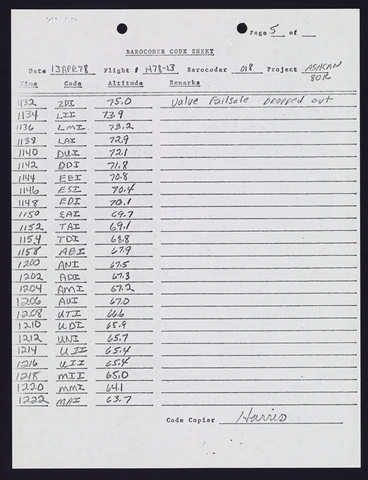 Page 5 of
BAROCODER CODE SHEET
Date 13APR78 Flight # H78-13 Barocoder 018 Project ASHCAN
80R
Time Code Altitude Remarks
1132 IDI 75.0 Valve Failsafe Dropped out
1134 LII 73.9
1136 LMI 73.2
1138 LAI 72.9
1140 DUI 72.1
1142 DDI 71.8
1144 EEI 70.8
1146 ESI 70.4
1148 EDI 70.1
1150 EAI 69.7
1152 TAI 69.1
1154 TDI 68.8
1158 AEI 67.9
1200 ANI 67.5
1202 ADI 67.3
1204 AMI 67.2
1206 AUI 67.0
1208 UTI 66.6
1210 UDI 65.9
1212 UNI 65.7
1214 UII 65.4
1216 UII 65.4
1218 MII 65.0
1220 MMI 64.1
1222 MAI 63.7
Code Copier Harris